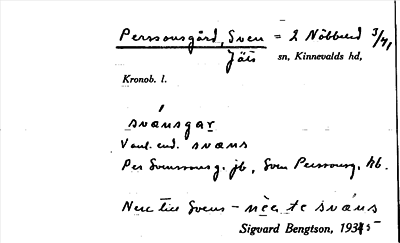 Perssonsgård, Sven = 2 Nöbbund 3/4,
Jäts sn, Kinnevalds hd,
Kronob. l.
svánsgaʀ
Vanl. end. svans
Per Svenssonsg. jb, Sven Perssonsg. hb.
Nere till Svens – nèe te sváns
Sigvard Bengtson, 1935